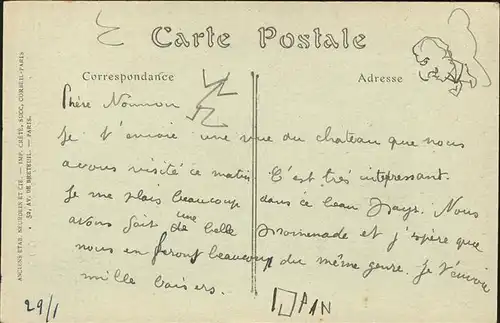 Carte Postale
Correspondance
Adresse
Chère
Je t'envoie une vue du chateau que nous
avons visité ce matin. C'est très intepressant.
Je me plais beaucoup dans ce beau Pays. Nous
avons fait une de belle promenade et j'espère que
nous en feront beaucoup du même genre. Je t'envoie
mille baisers.
29/1
ANCIENS ETAB. NEURDEIN ET CIE. — IMP. CRÉTÉ, SUCC. CORBEIL-PARIS
52, AV. DE BRETEUIL. — PARIS.